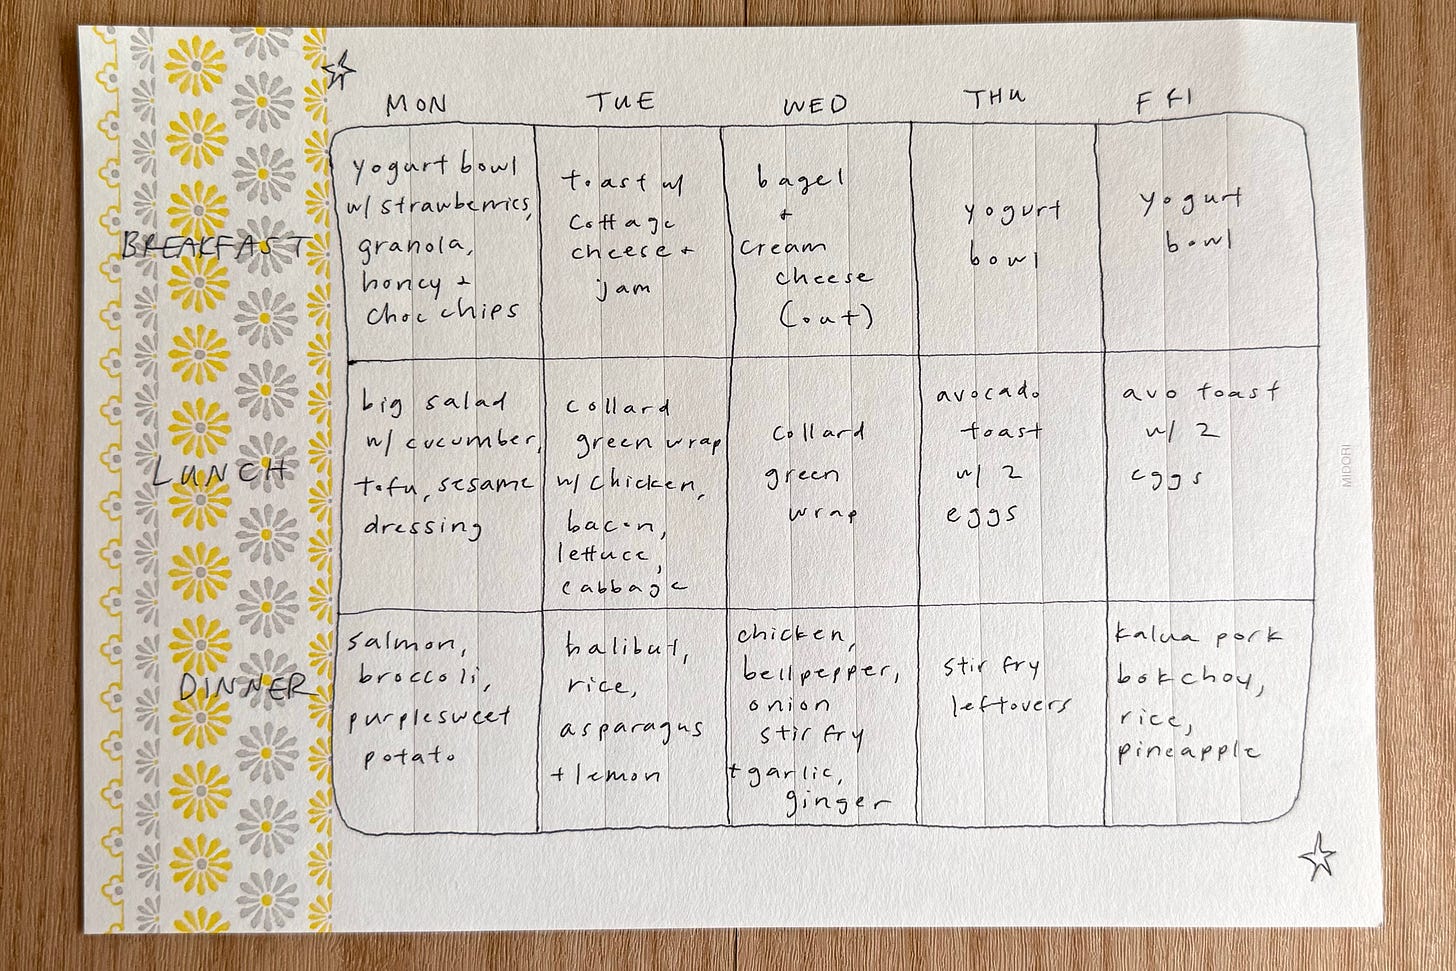 MON TUE WED THU FRI
BREAKFAST
yogurt bowl
w/ strawberries,
granola,
honey +
choc chips
toast w/
cottage
cheese +
jam
bagel
+
cream
cheese
(out)
yogurt
bowl
yogurt
bowl
LUNCH
big salad
w/ cucumber,
tofu, sesame
dressing
collard
green wrap
w/ chicken,
bacon,
lettuce,
cabbage
collard
green
wrap
avocado
toast
w/ 2
eggs
avo toast
w/ 2
eggs
DINNER
salmon,
broccoli,
purple sweet
potato
halibut,
rice,
asparagus
+ lemon
chicken,
bell pepper,
onion
stir fry
+ garlic,
ginger
stir fry
leftovers
kalua pork
bok choy,
rice,
pineapple
MIDORI